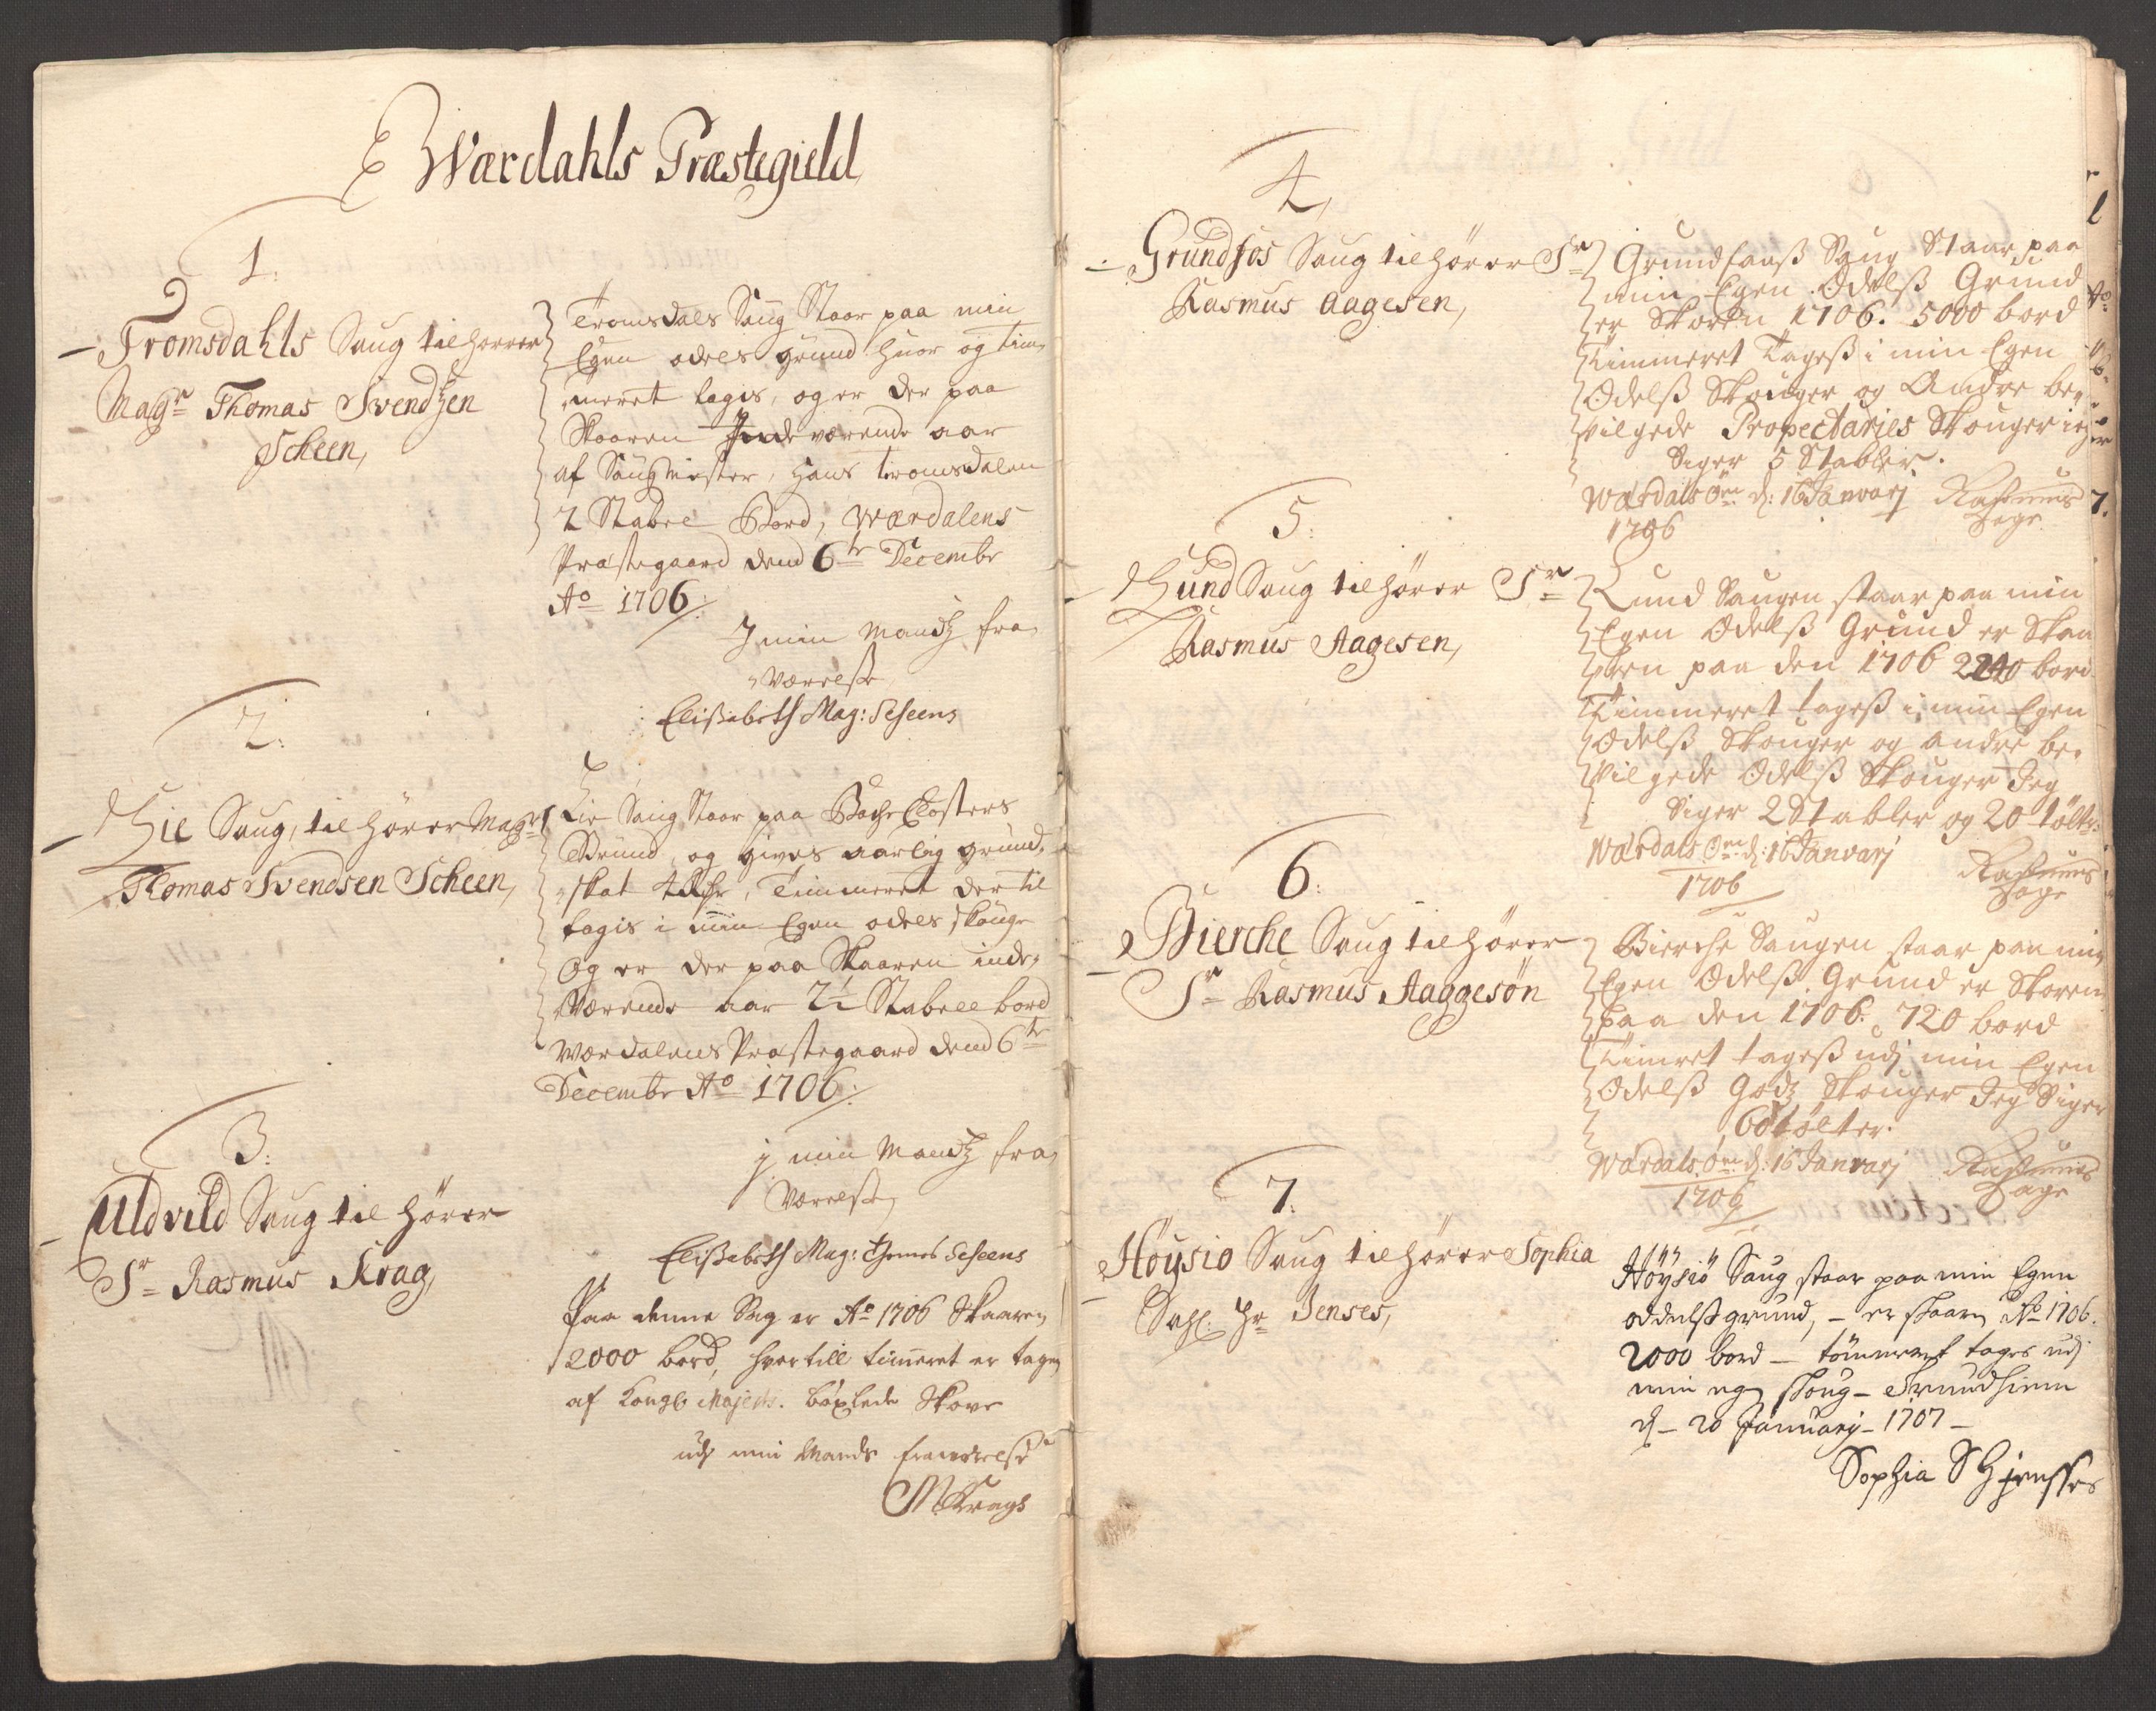 Værdahls Præstegield
1.
Tromsdahls Saug tilhörer
Magr Thomas Svendsen
Scheen,
Tromsdals Saug Staar paa min
Egen odels grund huor og tim-
meret tagis, og er der paa
Skaaren Inde værende aar
af Saugmester, Hans tromsdalen
2 Stabel Bord, Wærdalens
Præstegaard dend 6te Decembr
Ao 1706.
I min Mandz fra-
værelse
Elissabeth Mag: Scheens
2.
Lie Saug, tilhörer Magr
Thomas Svendsen Scheen,
Lie Saug Staar paa Bache Closters
Grund, og gives aarlig grund-
skat 4 Rdr, Timmeret der til
tagis i min Egen odels skouge
Og er der paa Skaaren inde-
værende aar 2½ Stabell bord
Wærdalens Præstegaard dend 6te
Decembr Ao 1706.
j min Mandz fra-
værelse
Elissabeth Mag: Thomes Scheens
3.
Uldvild Saug tilhörer
Sr Rasmus Krag,
Paa denne Sag er Ao 1706 Skaaren
2000 bord, hvortill timeret er tagen
af Kongl Majests. böxlede Skove
udj min Mands fraværelse
M Krags
4.
Grundfos Saug tilhörer Sr
Rasmus Aagesen,
Grundfauss Saug Staar paa
min Egen Odelss Grund
er Skoren 1706. 5000 bord
Timmeret Tagess i min Egen
Odelss Skouger og Andre be-
vilgede Propectaries Skouger ieg
Siger 5 Stabler.
Wærdals Ören d: 16 Janvarj
1706
Rasmus
Hage
5.
Lund Saug tilhörer Sr
Rasmus Aagesen,
Lund Saugen staar paa min
Egen Odelss Grund er Skaa
ren paa den 1706 2240 bord
Timmeret tagess i min Egen
Odelss Skouger og andre be-
vilgede Odelss Skouger Jeg
Siger 2 Stabler og 20 tölter
Wærdals Ören d: 16 Janvarj
1706
Rasmus
Hage
6.
Bierche Saug tilhörer
Sr Rasmus Aaggesön
Bierche Saugen staar paa min
Egen Odelss Grund er Skoren
paa den 1706. 720 bord
Timret tagess udj min Egen
Odelss Godz Skouger Jeg Siger
60 tölter.
Wærdals Ören d: 16 Janvarj
1706
Rasmus
Hage
7.
Höysiö Saug tilhörer Sophia
Sahl. Hr Jenses,
Höysiö Saug staar paa min Egen
oddelss grund, - er skaaren Ao 1706.
2000 bord - tömmeret tages udj
min egen skoug - Trundhiem
d - 20 Januarij - 1707 -
Sophia S Hr Jensses